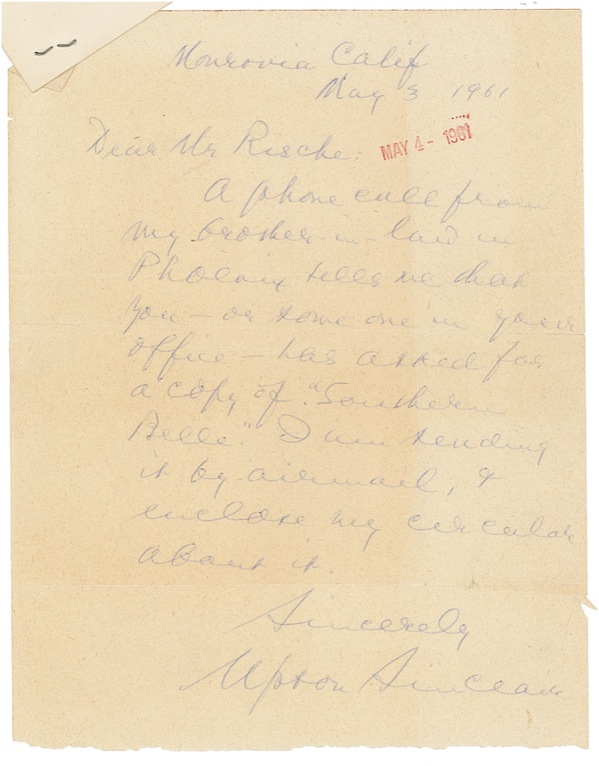 Monrovia Calif
May 3 1961
Dear Mr Rische:
MAY 4 - 1961
A phone call from
my brother-in-law in
Phoenix tells me that
you — or some one in your
office — has asked for
a copy of "Southern
Belle." I am sending
it by airmail, &
enclose my circular
about it.
Sincerely
Upton Sinclair